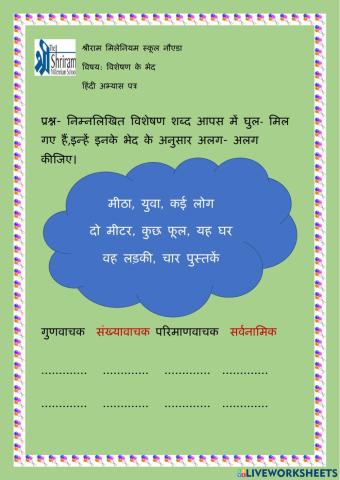 The
Shriram
Millennium School
श्रीराम मिलेनियम स्कूल नौएडा
विषय: विशेषण के भेद
हिंदी अभ्यास पत्र
प्रश्न- निम्नलिखित विशेषण शब्द आपस में घुल- मिल
गए हैं,इन्हें इनके भेद के अनुसार अलग- अलग
कीजिए।
मीठा, युवा, कई लोग
दो मीटर, कुछ फूल, यह घर
वह लड़की, चार पुस्तकें
गुणवाचक संख्यावाचक परिमाणवाचक सर्वनामिक
............. ............. ............. .............
............. ............. ............. .............
LIVEWORKSHEETS